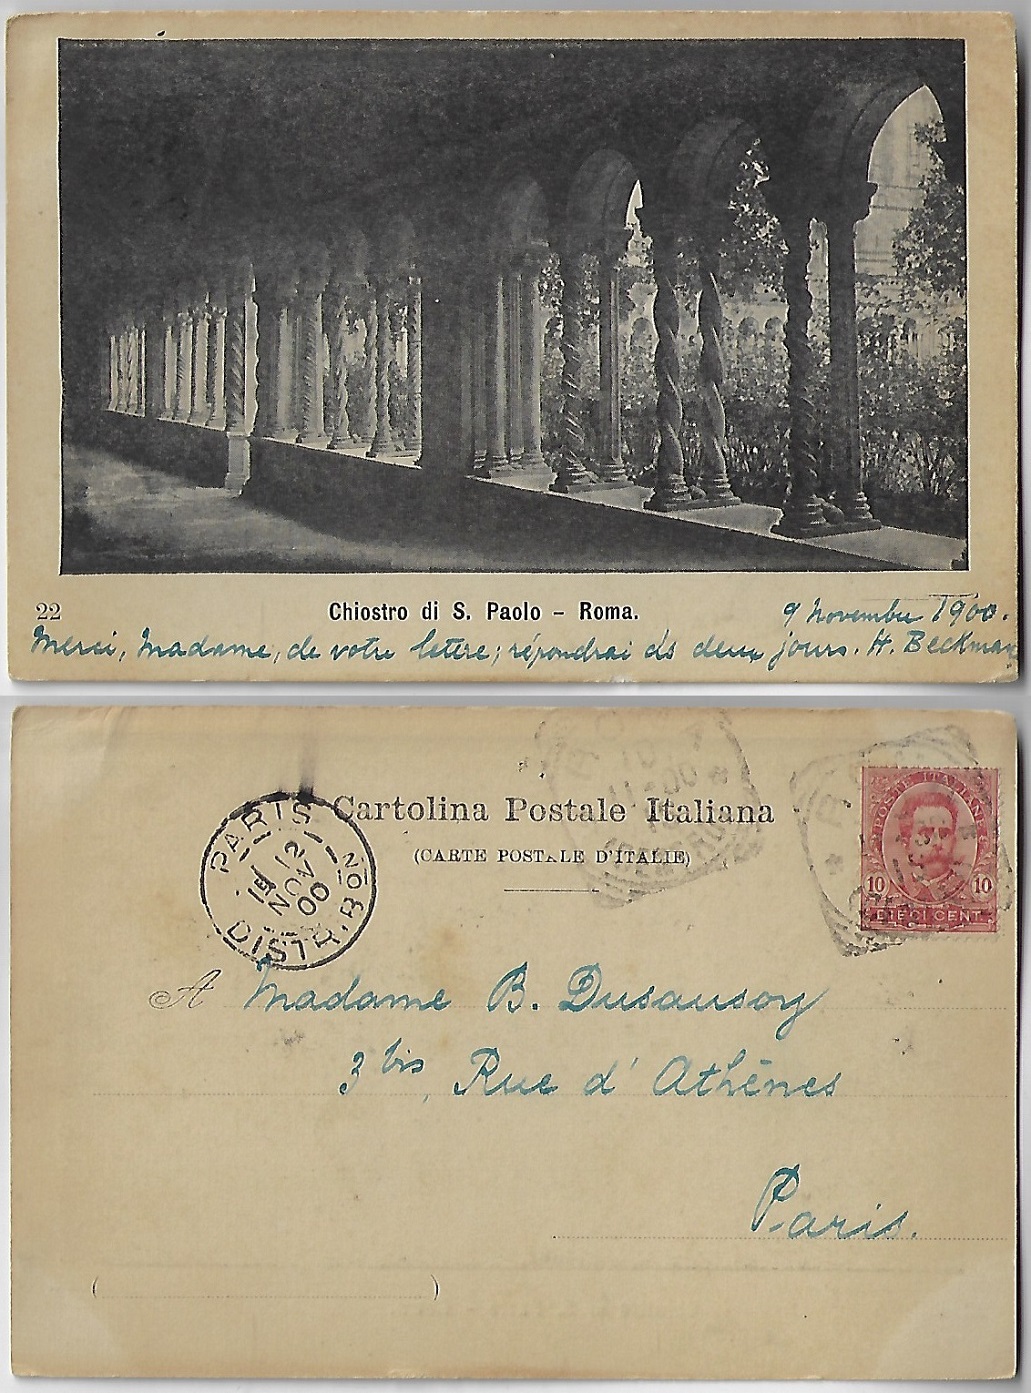 22
Chiostro di S. Paolo - Roma.
9 Novembre 1900.
Merci, Madame, de votre lettre; répondrai ds deux jours. H. Beckman
Cartolina Postale Italiana
(CARTE POSTALE D'ITALIE)
PARIS
12
NOV
00
DISTRIBON
POSTE ITALIANE
10 10
DIECI CENT
A Madame B. Dusausoy
3 bis, Rue d'Athènes
Paris.